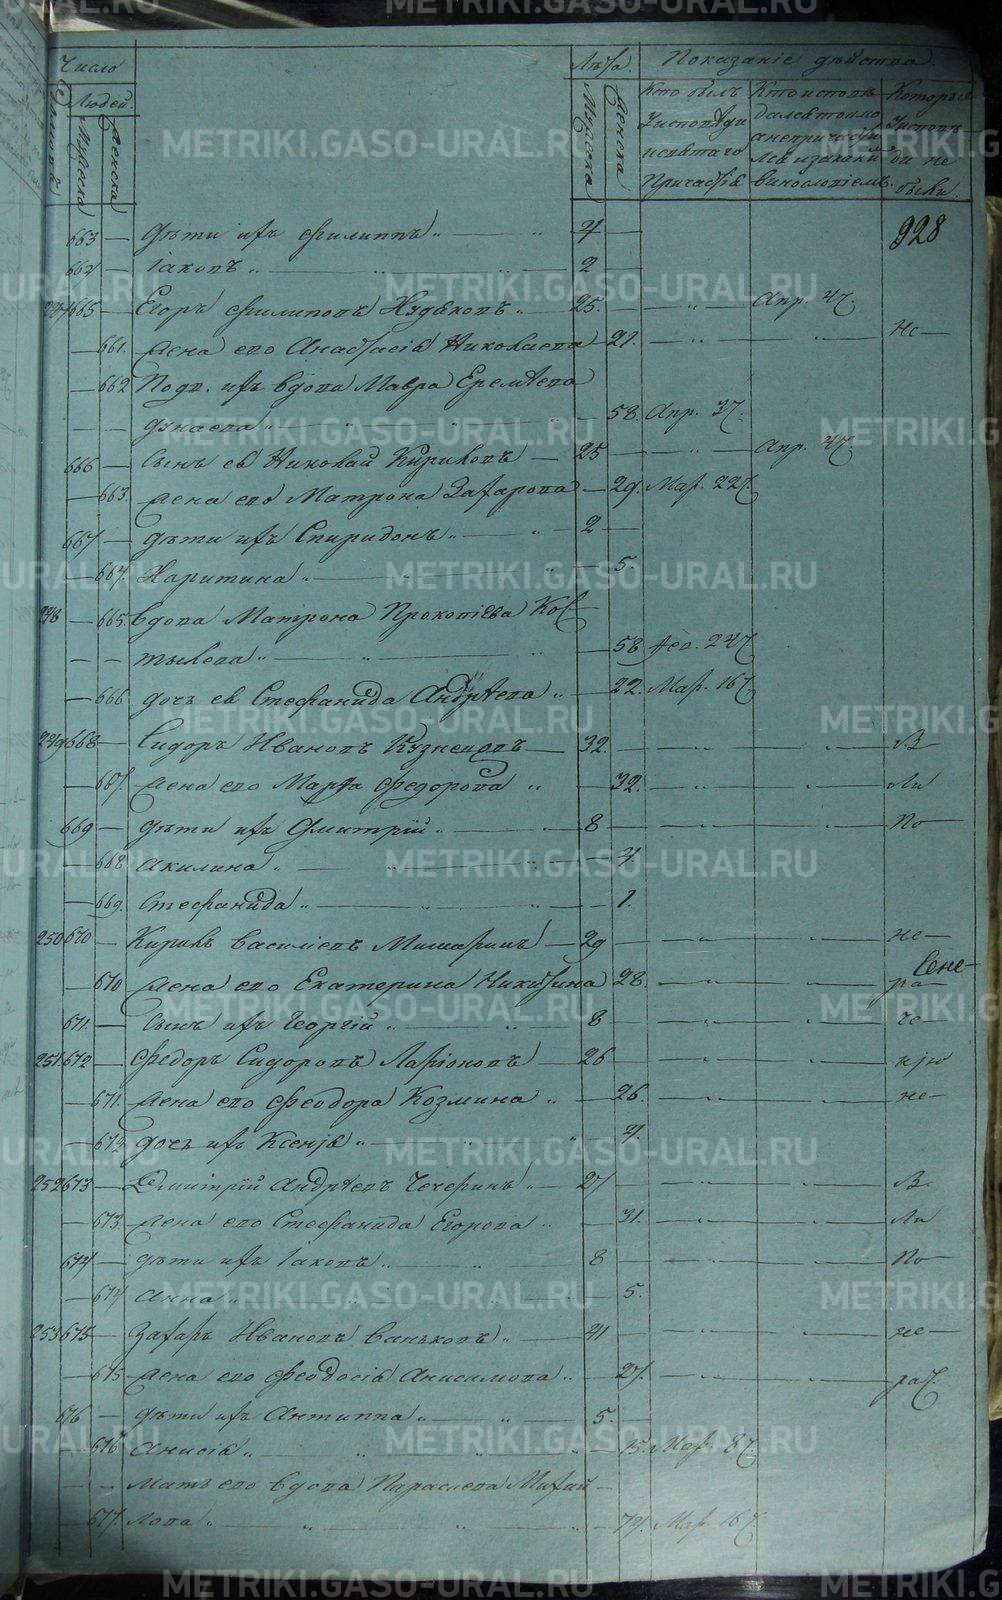 METRIKI.GASO-URAL.RU
Число Лѣта. Показаніе дѣйства.
Людей.
Дворовъ Мужеска Женска Мужеска Женска
Кто былъ Кто испов Которые
Уисповѣди далектолмо Уисповѣ
исвятаго анепричасти ди не
Причастія Лся изакаким были.
винословіемъ.
928
663 — Дѣти ихъ Филиппъ „ — 4 —
664 — Іаковъ „ — 2 —
247 665 — Егоръ Филиповъ Худяковъ „ — 25. — Апр. 4
— 661. Жена его Анастасія Николаева 21. — Не —
— 662 Подв. ихъ вдова Мавра Еремѣева
— — Дунаева „ — 58. Апр. 3
666 — Сынъ ея Николай Кириловъ — 25 — Апр. 4
— 663. Жена его Матрона Захарова — 29. Мар. 22
667 — Дѣти ихъ Спиридонъ „ — 2 —
— 664. Харитина „ — 5.
248 — 665. Вдова Матрона Прокопіева Кос
— — тылева „ — 58 Фев. 24
— 666 Дочь ея Стефанида Андрѣева „ — 22. Мар. 16
249 668 — Сидоръ Ивановъ Кузнецовъ — 32. — В
— 667. Жена его Марфа Федорова „ — 32. — Ли
669 — Дѣти ихъ Дмитрій „ — 8 — По
— 668 Акилина „ — 4.
— 669. Стефанида „ — 1.
250 670 — Кирилъ Василіевъ Мишаринъ — 29 — не —
— 670 Жена его Екатерина Никитина 28. — ра —
Сене —
671. — Сынъ ихъ Георгій „ — 8 — че —
251. 672 — Федоръ Сидоровъ Ларіоновъ — 26 — нію
— 671. Жена его Феодора Козмина „ — 26. — не —
— 672. Дочь ихъ Ксенія „ — 4.
252 673 — Дмитрій Андрѣевъ Чечеринъ „ — 27 — В
— 673. Жена его Стефанида Егорова „ — 31. — Ли
674 — Дѣти ихъ Іаковъ „ — 8 — По
— 674 Анна „ — 5.
253 675 — Захаръ Ивановъ Ваньковъ „ — 41 — не —
— 675 — Жена его Феодосія Анисимова „ — 27. — рач.
676 — Дѣти ихъ Антиппа „ — 5. —
— 676 Анисія „ — 15. Мар. 8
— — Мать его вдова Параскева Михай —
— 677. лова „ — 74. Мар. 16